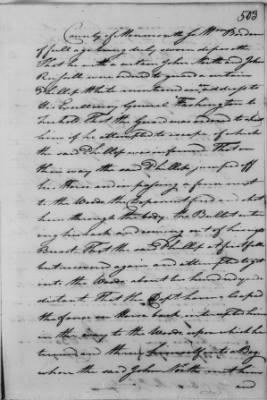 503
County of Monmouth ss Wm Borden
of full age being duly sworn deposeth
That he with a certain John North and John
Russell were ordered to guard a certain
Phillip White mentioned in address to
his Excellency General Washington to
Freehold That the Guard was ordered to shoot
him if he attempted to escape of which
the said Phillip was informed That on
their way the said Phillip jumped off
his Horse and in passing a fence next
to the Woods the Deponent fired and shot
him through the body the Bullet enter
ing his back and coming out of his
Breast That the said Phillip at first fell
but recovered again and attempted to get
into the Woods about one hundred yards
distant That the Deponent having leaped
the fence on Horse back intercepted him
in the way to the Woods upon which he
turned and threw himself into a Bog
where the said John North met him
and